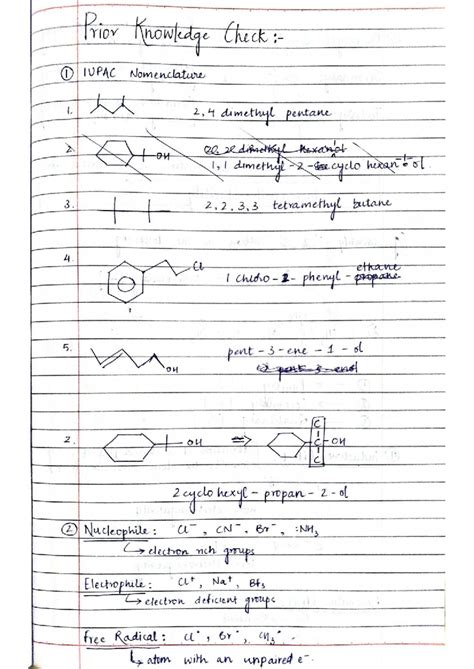 Prior Knowledge Check :-
① IUPAC Nomenclature
1. 2, 4 dimethyl pentane
2. OH 2, 2 dimethyl hexanol
1, 1 dimethyl - 2 - cyclo hexan - 1 - ol
3. 2, 2, 3, 3 tetramethyl butane
4. Cl ethane
1 chloro - 2 - phenyl - propane
5. OH pent - 3 - ene - 1 - ol
pent - 3 - enol
2. OH ⇒ C - C - C OH
2 cyclo hexyl - propan - 2 - ol
② Nucleophile : Cl⁻, CN⁻, Br⁻, :NH₃
↳ electron rich groups
Electrophile : Cl⁺, Na⁺, Bf₃
↳ electron deficient groups
Free Radical : Cl˙, Br˙, CH₃˙
↳ atom with an unpaired e⁻.